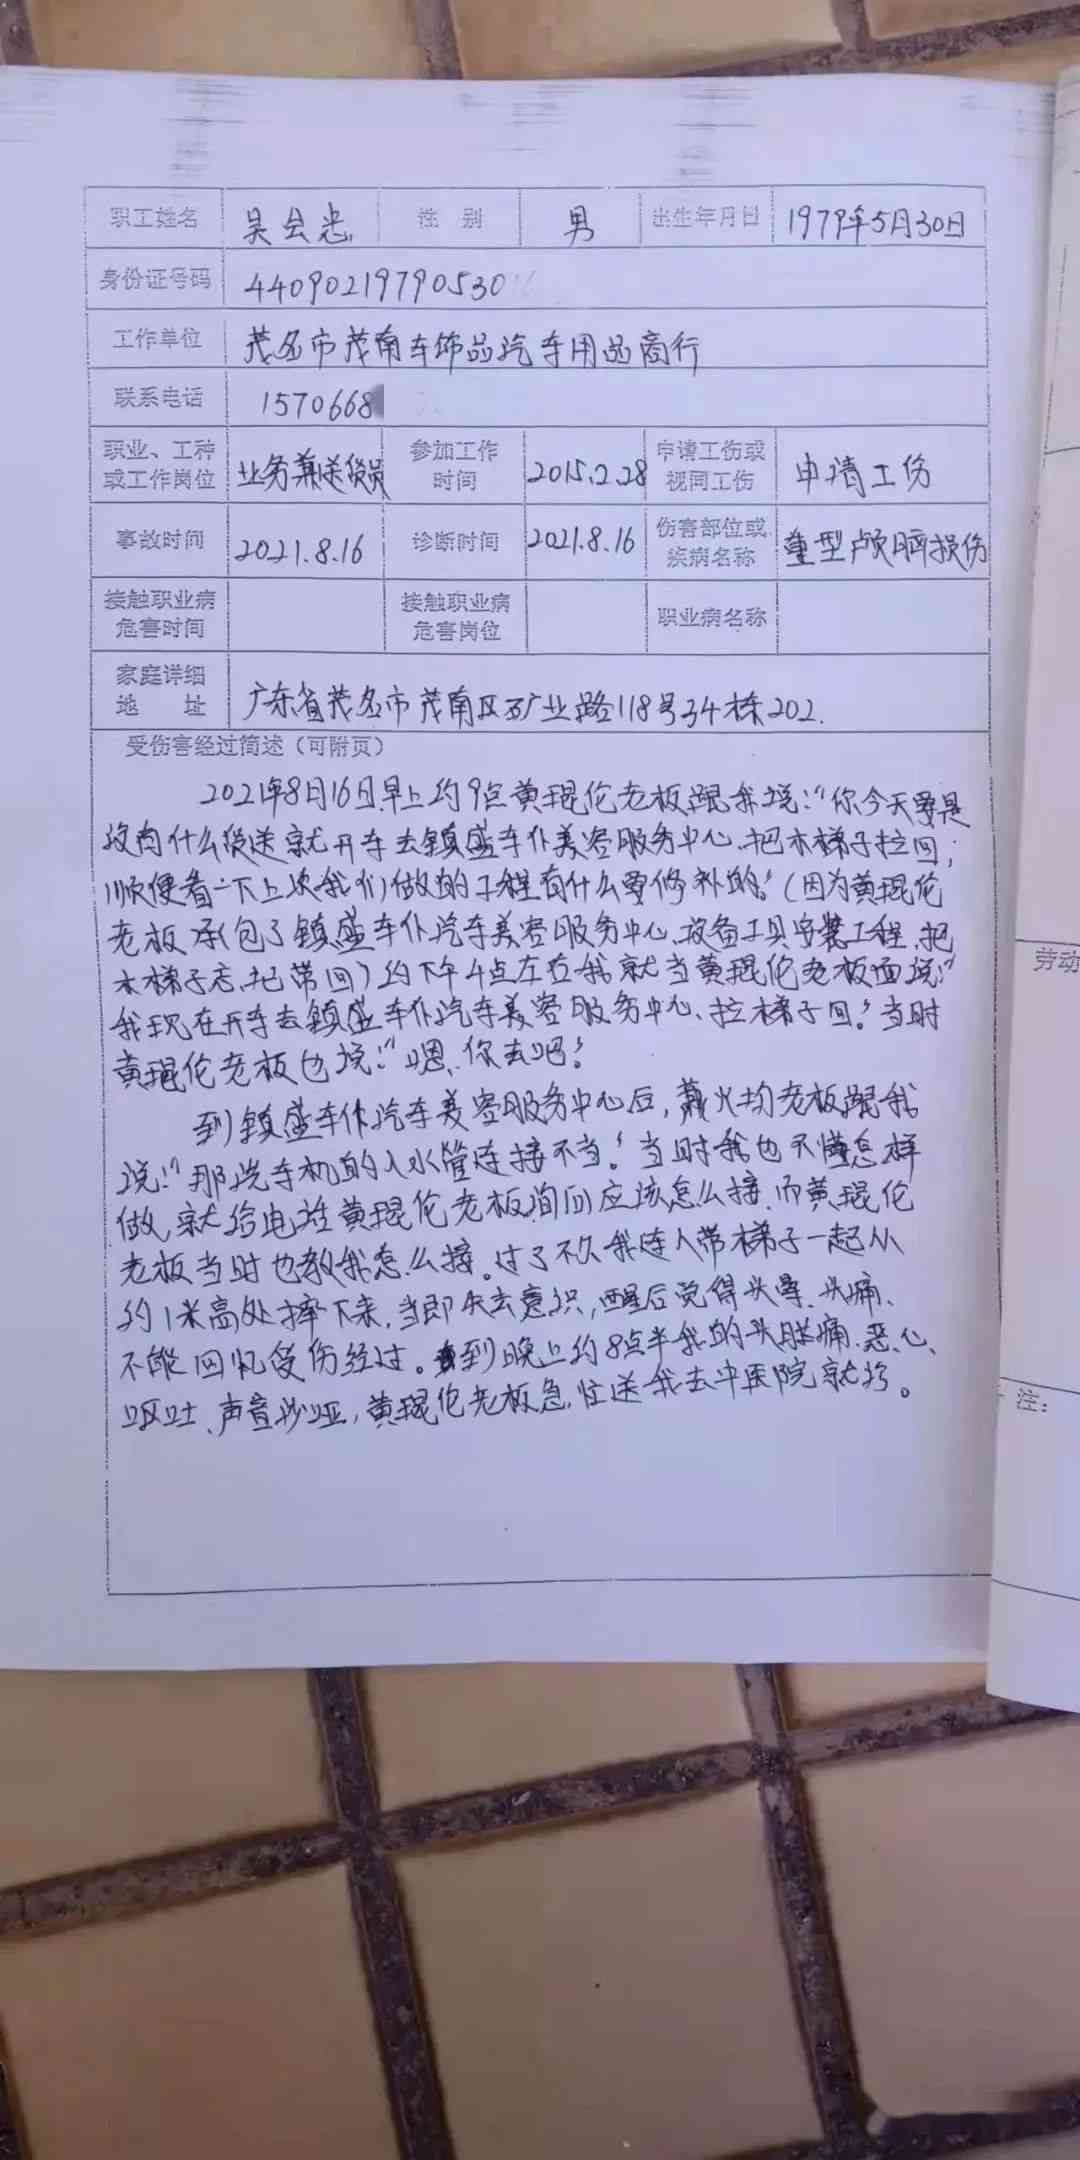 职工姓名 吴会忠 性 别 男 出生年月日 1979年5月30日
身份证号码 44090219790530
工作单位 茂名市茂南车饰品汽车用品商行
联系电话 1570668
职业、工种或工作岗位 业务兼送货员 参加工作时间 2015.2.28 申请工伤或视同工伤 申请工伤
事故时间 2021.8.16 诊断时间 2021.8.16 伤害部位或疾病名称 重型颅脑损伤
接触职业病危害时间 接触职业病危害岗位 职业病名称
家庭详细地 址 广东省茂名市茂南区矿业路118号34栋202.
受伤害经过简述（可附页）
2021年8月16日早上约9点黄琨伦老板跟我说:"你今天要是
没有什么货送就开车去镇盛车仆美容服务中心、把木梯子拉回；
顺便看一下上次我们做的工程有什么要修补的."(因为黄琨伦
老板承包了镇盛车仆汽车美容服务中心、设备工具安装工程、把
木梯子忘记带回)约下午4点左右我就当黄琨伦老板面说:"
我现在开车去镇盛车仆汽车美容服务中心、拉梯子回."当时
黄琨伦老板也说:"嗯、你去吧."
到镇盛车仆汽车美容服务中心后，火均老板跟我
说:"那洗车机的入水管连接不当."当时我也不懂怎样
做，就给电话黄琨伦老板询问应该怎么接、而黄琨伦
老板当时也教我怎么接。过了不久我连人带梯子一起从
约1米高处摔下来，当即失去意识，醒后觉得头晕、头痛、
不能回忆受伤经过。到晚上约8点半我的头胀痛、恶心、
呕吐、声音沙哑，黄琨伦老板急忙送我去中医院就诊。
劳动
注：